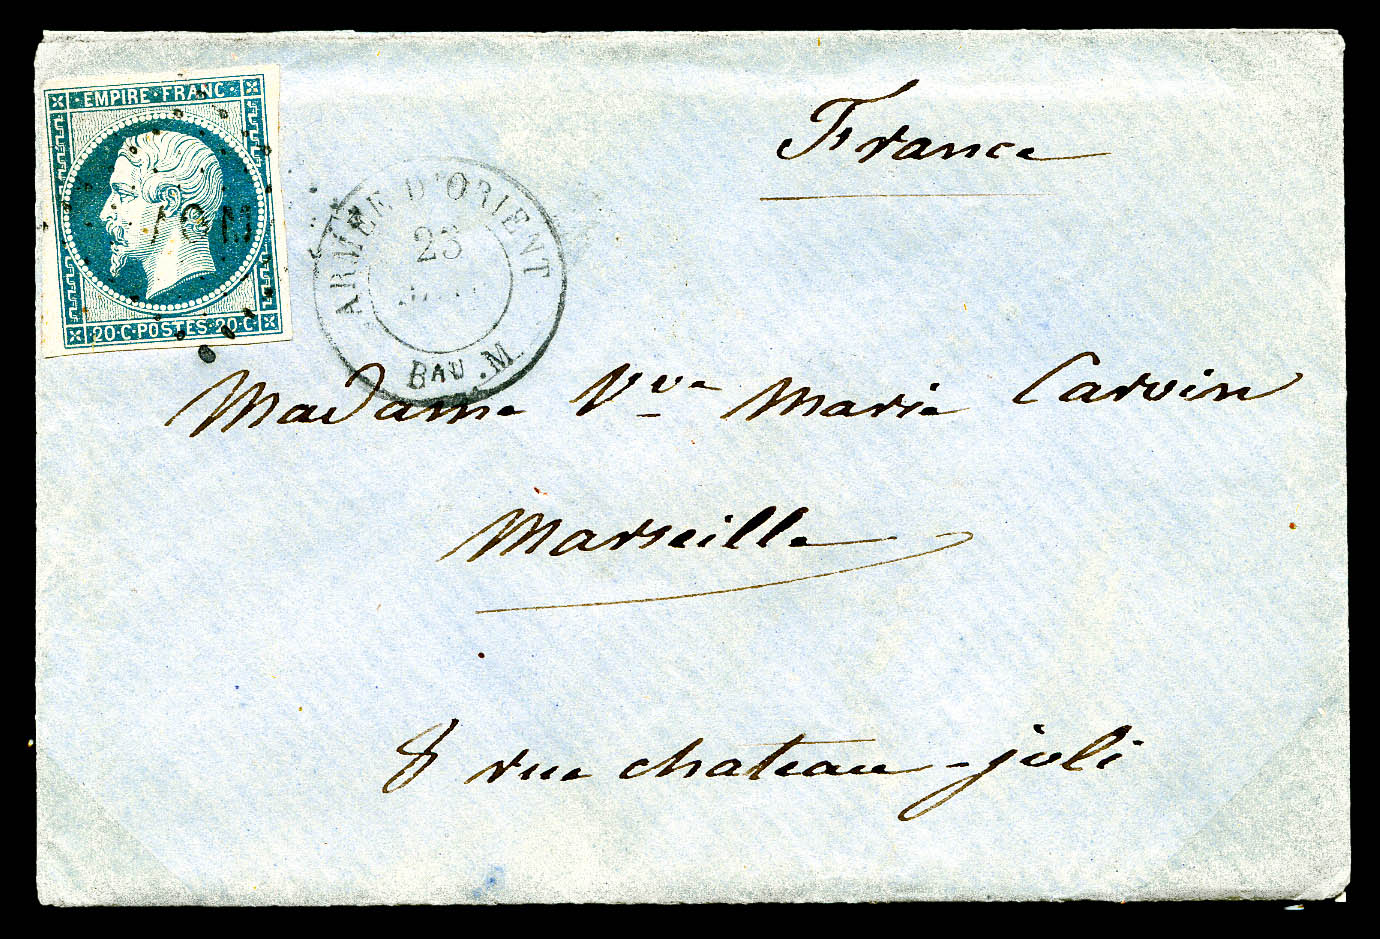 EMPIRE · FRANC ·
20 · C · POSTES · 20 · C ·
ARMÉE D'ORIENT
BAU . M
France
Madame Vve Marie Carvin
Marseille
8 rue chateau-joli